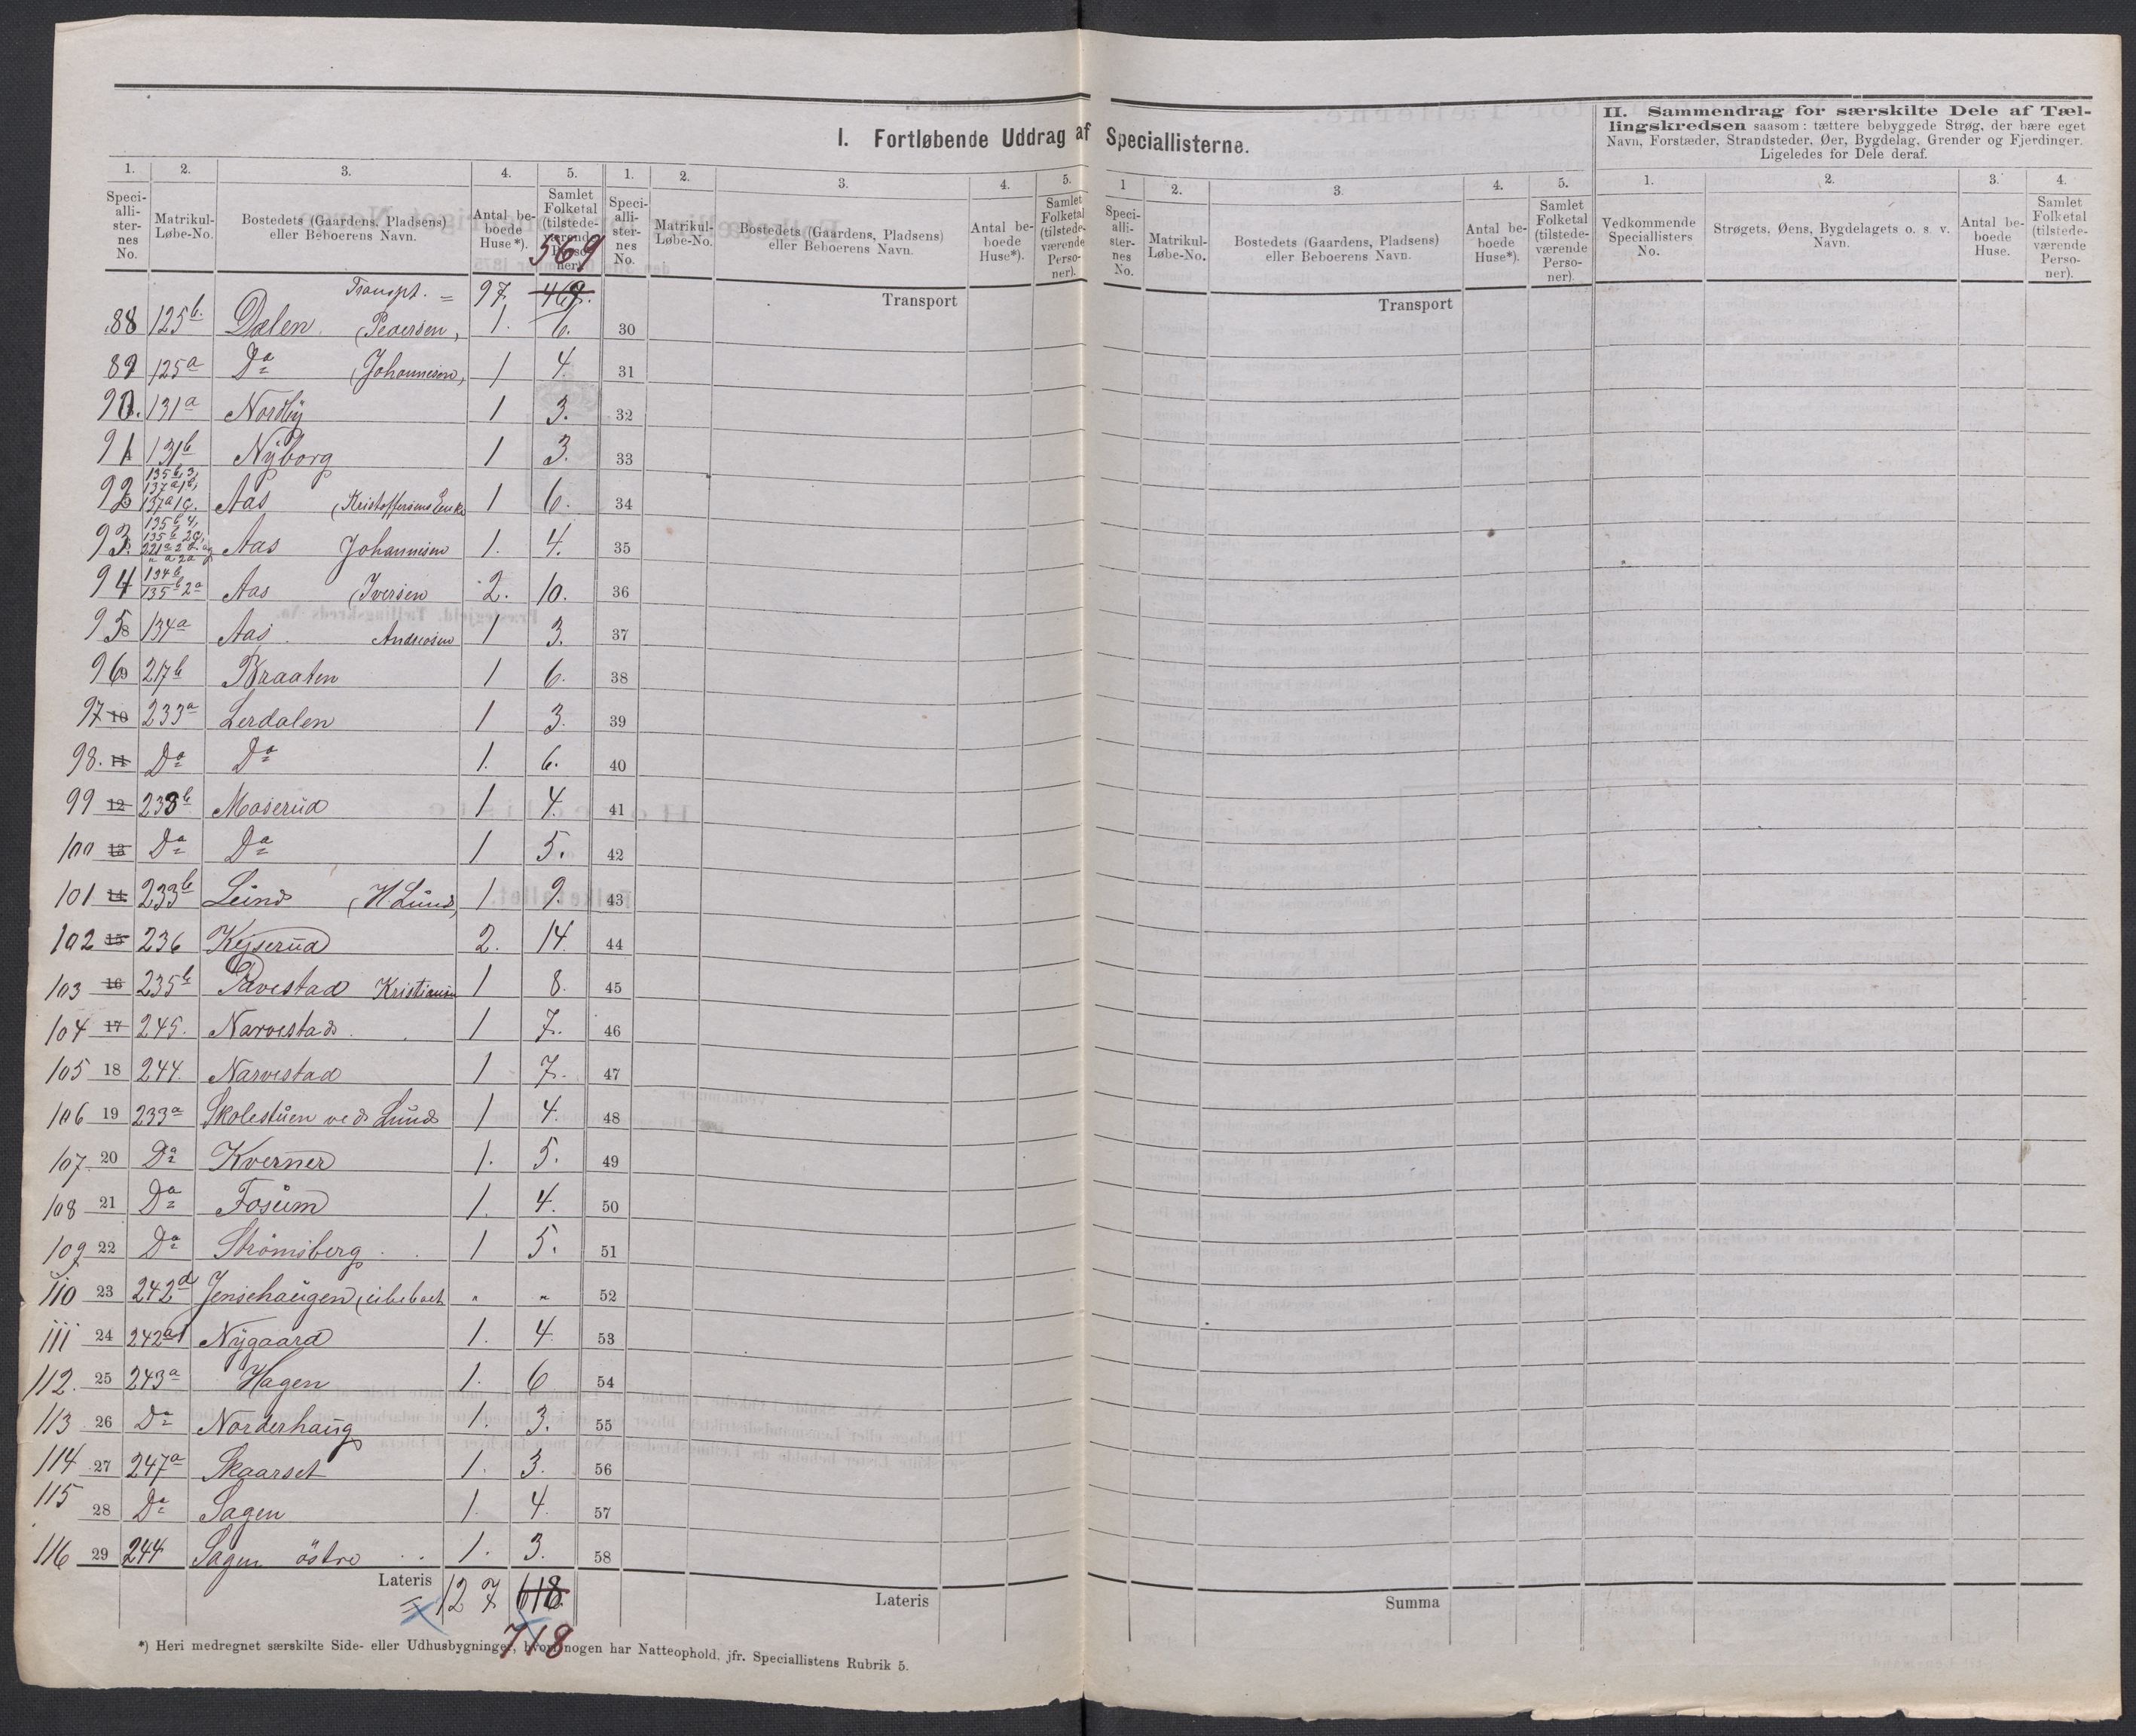 I. Fortløbende Uddrag af Speciallisterne.
II. Sammendrag for særskilte Dele af Tæl-
lingskredsen saasom: tættere bebyggede Strøg, der bære eget
Navn, Forstæder, Strandsteder, Øer, Bygdelag, Grender og Fjerdinger.
Ligeledes for Dele deraf.
1. 2. 3. 4. 5. 1. 2. 3. 4. 5. 1 2. 3. 4. 5. 1. 2. 3. 4.
Speci-
alli-
ster-
nes
No.
Matrikul-
Løbe-No.
Bostedets (Gaardens, Pladsens)
eller Beboerens Navn.
Antal be-
boede
Huse*).
Samlet
Folketal
(tilstede-
værende
Perso-
ner).
Speci-
alli-
ster-
nes
No.
Matrikul-
Løbe-No.
Bostedets (Gaardens, Pladsens)
eller Beboerens Navn.
Antal be-
boede
Huse*).
Samlet
Folketal
(tilstede-
værende
Perso-
ner).
Speci-
alli-
ster-
nes
No.
Matrikul-
Løbe-No.
Bostedets (Gaardens, Pladsens)
eller Beboerens Navn.
Antal be-
boede
Huse*).
Samlet
Folketal
(tilstede-
værende
Perso-
ner).
Vedkommende
Speciallisters
No.
Strøgets, Øens, Bygdelagets o. s. v.
Navn.
Antal be-
boede
Huse.
Samlet
Folketal
(tilstede-
værende
Perso-
ner).
569
Transpt. = 97. 469. Transport Transport
88 125b. Dalen (Pedersen, 1. 6. 30
89 125a Da (Johannesen, 1 4. 31
90. 131a Nordby 1 3. 32
91 131b Nyborg 1 3. 33
135b,3,
137a1b,
92 137a1c. Aas (Kristoffersens Enke 1 6. 34
135b4,
135b2c,
93. Aas Johannesen 1. 4. 35
134b
94 135b2a Aas (Iversen 2. 10. 36
95 134a Aas. Andresen 1 3. 37
96 217b Braaten 1 6. 38
97 10 233a Lerdalen 1 3. 39
98. 11 Da Da 1. 6. 40
99 12 238b Moserud 1 4. 41
100 13 Da Da 1 5. 42
101 14 233b Lund (H. Lund, 1. 9. 43
102 15 236 Kejserud 2. 14. 44
103 16 235b Pavestad Kristiansen 1 8. 45
104 17 245. Narvestad. 1 7. 46
105 18 244. Narvestad 1 7. 47
106 19 233a Skolestuen ved Lund 1 4. 48
107. 20 Da Kverner 1. 5. 49
108 21 Da Fosum 1. 4. 50
109 22 Da Strømsberg 1 5. 51
110 23 242d Jensehaugen (ubeboet " " 52
111 24 242a1 Nygaard 1. 4. 53
112. 25 243a Hagen 1. 6 54
113 26 Da Norderhaug 1. 3. 55
114 27 247a Skaarset 1. 3. 56
115 28 Da Sagen 1. 4. 57
116 29 244 Sagen östre 1. 3. 58
Lateris = 127 618. Lateris Summa
718
*) Heri medregnet særskilte Side- eller Udhusbygninger, hvori nogen har Natteophold, jfr. Speciallistens Rubrik 5.